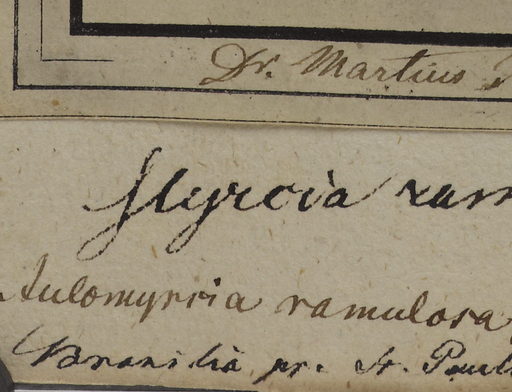 Dr. Martius
Myrcia ram
Aulomyrcia ramulosa
Brasilia pr. St. Paul